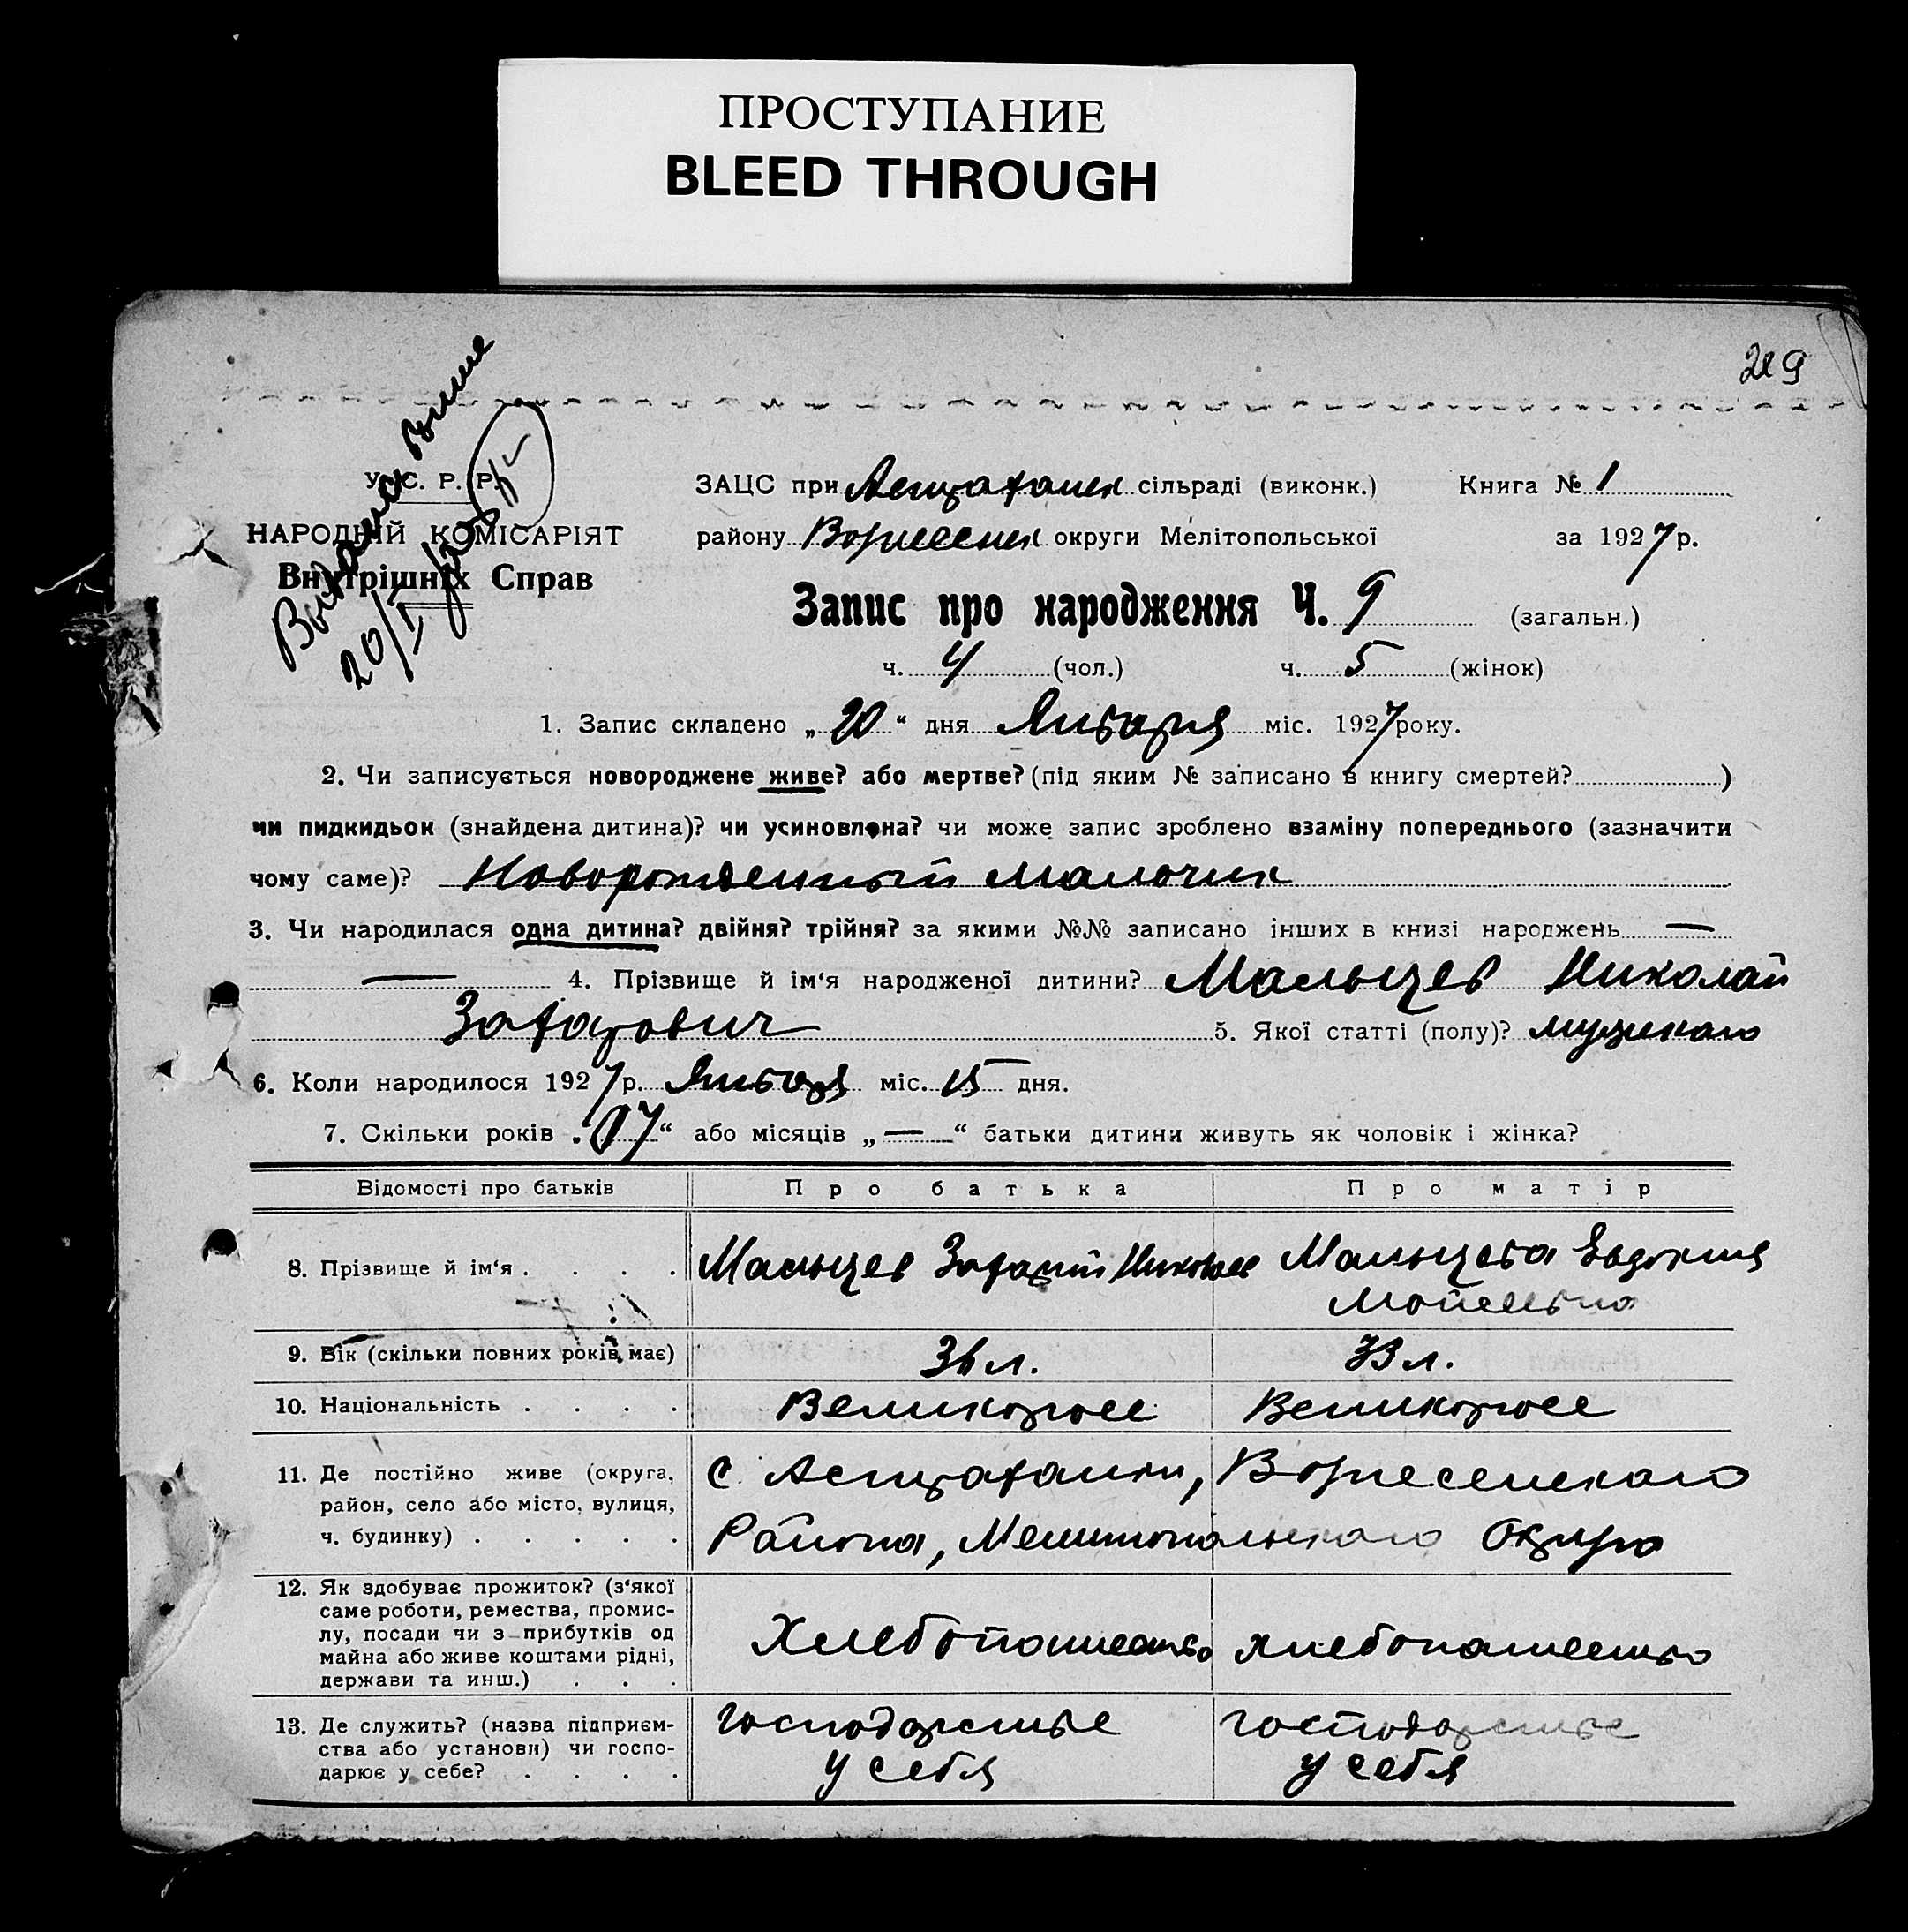 ПРОСТУПАНИЕ
BLEED THROUGH
219
У. С. Р. Р.
НАРОДНІЙ КОМІСАРІЯТ
Внутрішніх Справ
20/I
ЗАЦС при Астраханск сільраді (виконк.) Книга № 1
району Вознесенск округи Мелітопольської за 1927 р.
Запис про народження Ч. 9 (загальн.)
ч. 4 (чол.) ч. 5 (жінок)
1. Запис складено „20“ дня Января міс. 1927 року.
2. Чи записується новороджене живе? або мертве? (під яким № записано в книгу смертей? )
чи пидкидьок (знайдена дитина)? чи усиновлена? чи може запис зроблено взаміну попереднього (зазначити
чому саме)? Новорожденный мальчик
3. Чи народилася одна дитина? двійня? трійня? за якими №№ записано інших в книзі народжень —
— 4. Прізвище й ім‘я народженої дитини? Мальцев Николай
Захарович 5. Якої статті (полу)? мужскаго
6. Коли народилося 1927 р. Января міс. 15 дня.
7. Скільки років „17“ або місяців „—“ батьки дитини живуть як чоловік і жінка?
Відомості про батьків Про батька Про матір
8. Прізвище й ім‘я . . . . Мальцев Захарий Никол Мальцева Евдокия
Моисеевна
9. Вік (скільки повних років має) 36 л. 33 л.
10. Національність . . . . Великоросс Великоросс
11. Де постійно живе (округа, с. Астраханки, Вознесенскаго
район, село або місто, вулиця,
ч. будинку) . . . . . Района, Мелитопольскаго Округа
12. Як здобуває прожиток? (з‘якої
саме роботи, ремества, промис-
лу, посади чи з прибутків од Хлебопашество хлебопашество
майна або живе коштами рідні,
держави та инш.) . . .
13. Де служить? (назва підприєм- господарстве господарстве
ства або установи) чи госпо- у себя у себя
дарює у себе? . . . .